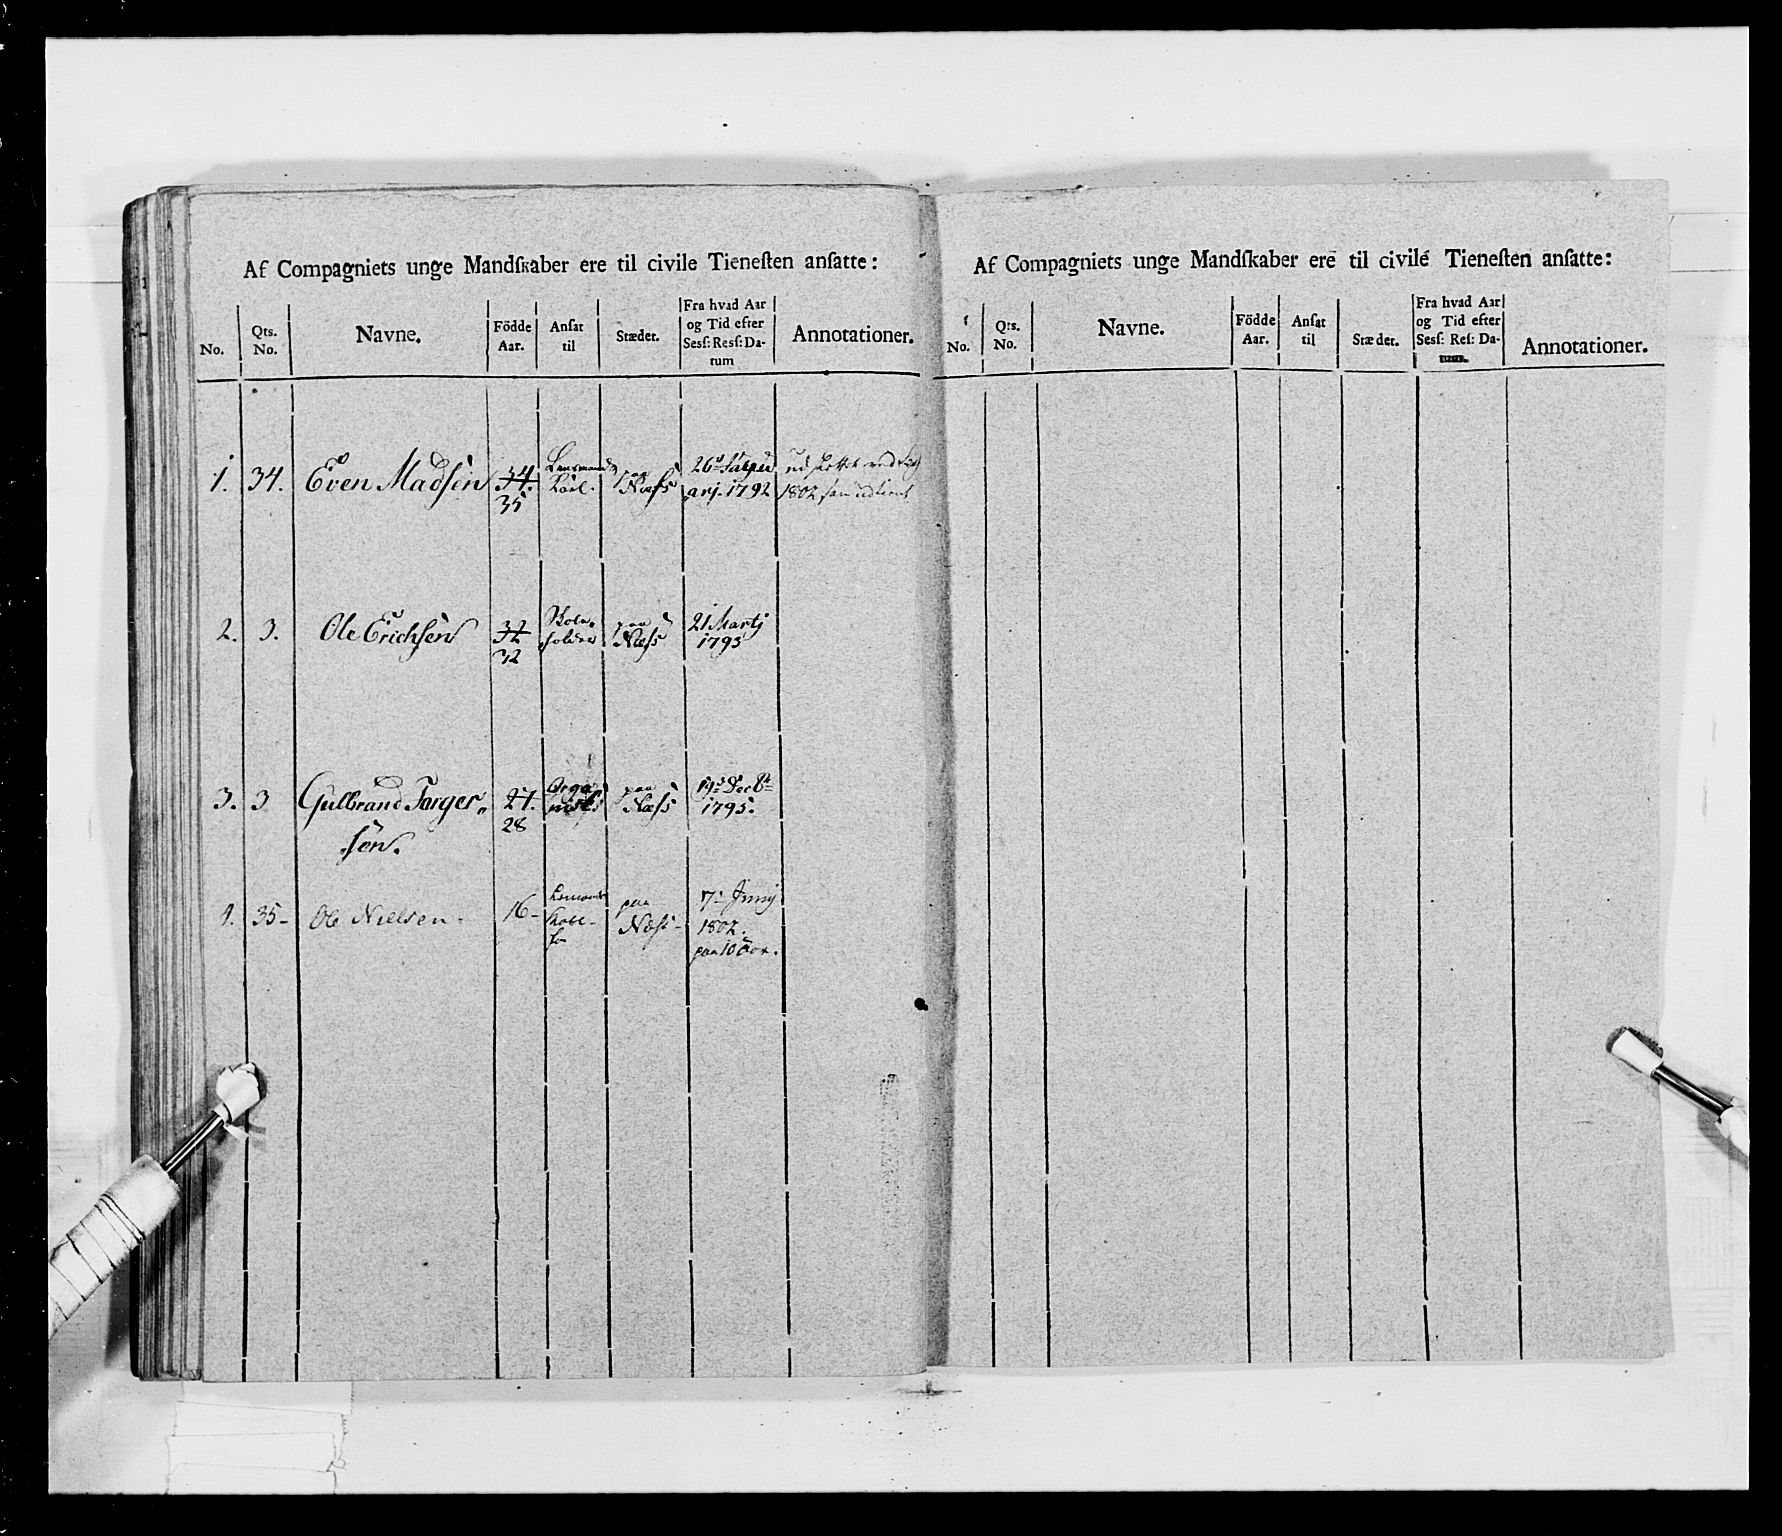 Af Compagniets unge Mandſkaber ere til civile Tieneſten anſatte:
No. Qts. No. Navne. Födde Aar. Anſat til Stædet. Fra hvad Aar og Tid efter Sesſ: Resſ: Datum Annotationer.
1. 34. Even Madsen 34. Lensmands paa 26de
35 Karl. Næss arj. 1792 1802
2. 3. Ole Erichsen 32 Skole- paa 21 Martj
32 holder Næss 1795
3. 3 Gulbrand Torger- 27. Orga- paa 19de Decbr
sen. 28 nist Næss 1795.
4. 35- Ole Nielsen- 16- paa 7de Junij
Næss- 1802.
paa 10 Aar.
Af Compagniets unge Mandſkaber ere til civile Tieneſten anſatte:
No. Qts. No. Navne. Födde Aar. Anſat til Stædet. Fra hvad Aar og Tid efter Sesſ: Reſ: Datum. Annotationer.